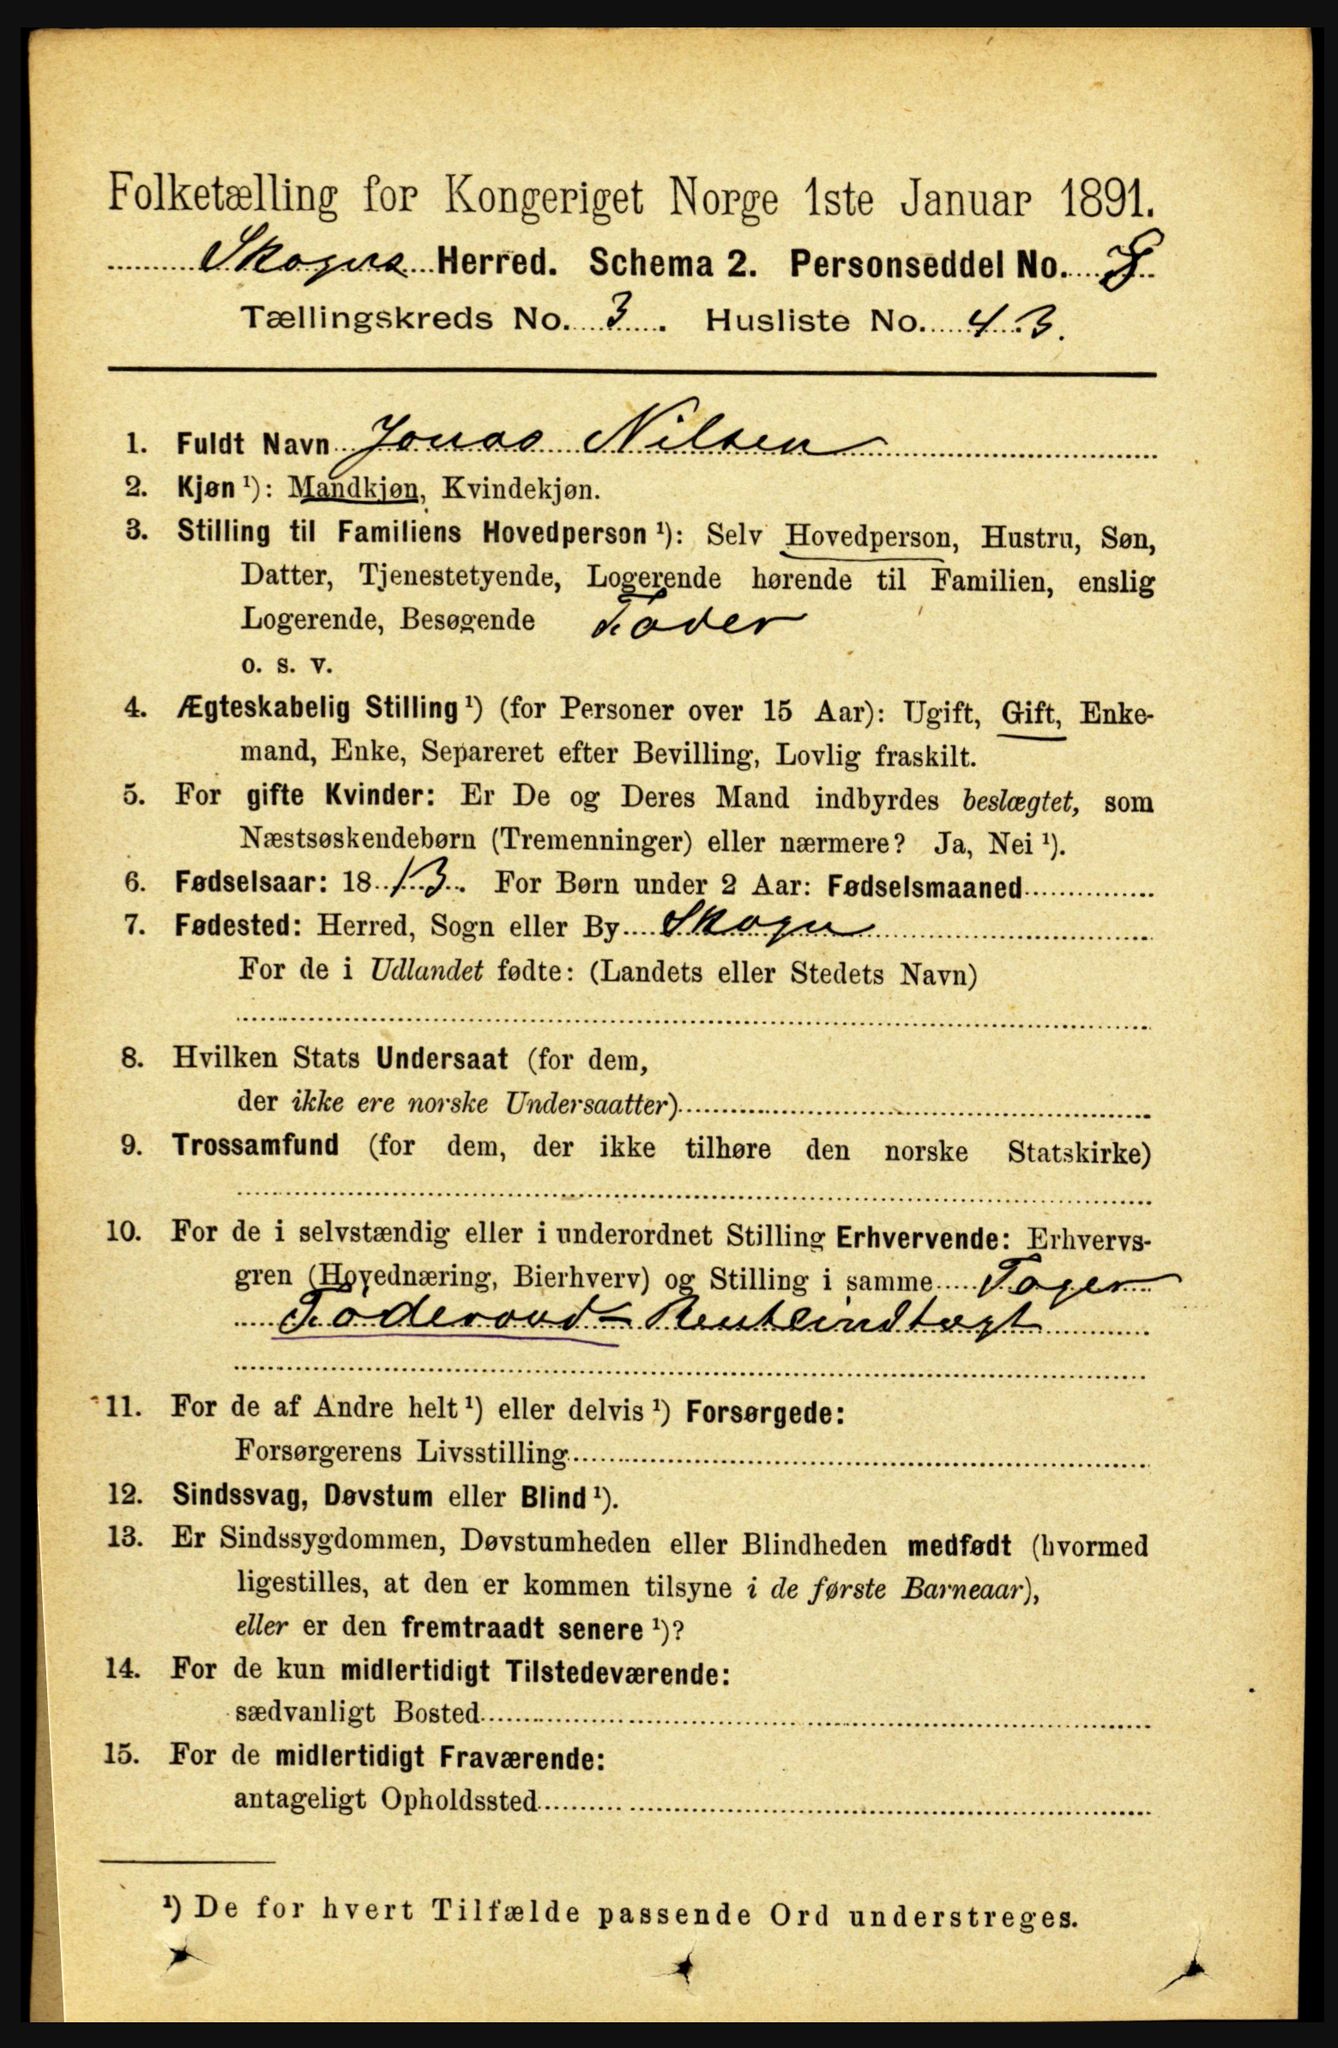 Folketælling for Kongeriget Norge 1ste Januar 1891.
Skogns Herred. Schema 2. Personseddel No. 8
Tællingskreds No. 3. Husliste No. 43.
1. Fuldt Navn Jonas Nilsen
2. Kjøn ¹): Mandkjøn, Kvindekjøn.
3. Stilling til Familiens Hovedperson ¹): Selv Hovedperson, Hustru, Søn,
Datter, Tjenestetyende, Logerende hørende til Familien, enslig
Logerende, Besøgende Fader
o. s. v.
4. Ægteskabelig Stilling ¹) (for Personer over 15 Aar): Ugift, Gift, Enke-
mand, Enke, Separeret efter Bevilling, Lovlig fraskilt.
5. For gifte Kvinder: Er De og Deres Mand indbyrdes beslægtet, som
Næstsøskendebørn (Tremenninger) eller nærmere? Ja, Nei ¹).
6. Fødselsaar: 1813. For Børn under 2 Aar: Fødselsmaaned
7. Fødested: Herred, Sogn eller By Skogn
For de i Udlandet fødte: (Landets eller Stedets Navn)
8. Hvilken Stats Undersaat (for dem,
der ikke ere norske Undersaatter)
9. Trossamfund (for dem, der ikke tilhøre den norske Statskirke)
10. For de i selvstændig eller i underordnet Stilling Erhvervende: Erhvervs-
gren (Hovednæring, Bierhverv) og Stilling i samme Tager
Foderaad
11. For de af Andre helt ¹) eller delvis ¹) Forsørgede:
Forsørgerens Livsstilling
12. Sindssvag, Døvstum eller Blind ¹).
13. Er Sindssygdommen, Døvstumheden eller Blindheden medfødt (hvormed
ligestilles, at den er kommen tilsyne i de første Barneaar),
eller er den fremtraadt senere ¹)?
14. For de kun midlertidigt Tilstedeværende:
sædvanligt Bosted
15. For de midlertidigt Fraværende:
antageligt Opholdssted
¹) De for hvert Tilfælde passende Ord understreges.